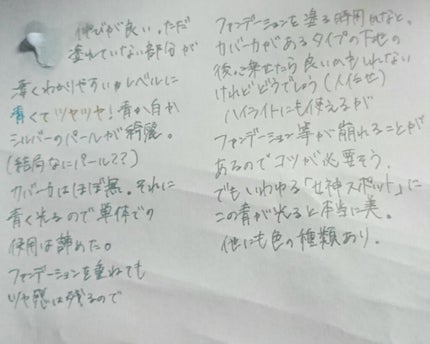 伸びが良い。ただ
塗れていない部分が
青くわかりやすいレベルに
青くてツヤツヤ!青か白か
シルバーのパールが綺麗。
(結局なにパール??)
カバー力はほぼ無。それに
青く光るので単体での
使用は諦めた。
ファンデーションを重ねても
ツヤ感は残るので
ファンデーションを塗る時用かなと。
カバー力があるタイプの下地の
後に乗せたら良いのかもしれない
けれどどうでしょう(人任せ)
ハイライトにも使えるが
ファンデーション等が崩れることが
あるのでコツが必要そう。
でもいわゆる「女神スポット」に
この青が光ると本当に美。
他にも色の種類あり。